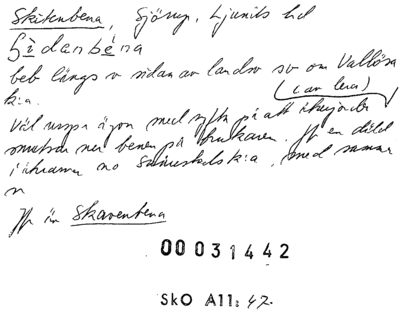 Skitenbena, Sjörup, Ljunits hd
Sìdanbéna
beb längs v sidan av landsv sv om Vallösa
k:a. (av lera)
Väl urspr ägon med syfte på att
smutsar ner benen på brukaren. Jfr en däld
i ihrarna no Sainskelsk:a, med samma
n
Jfr än Skarenbena
00031442
SkO A11: 47.